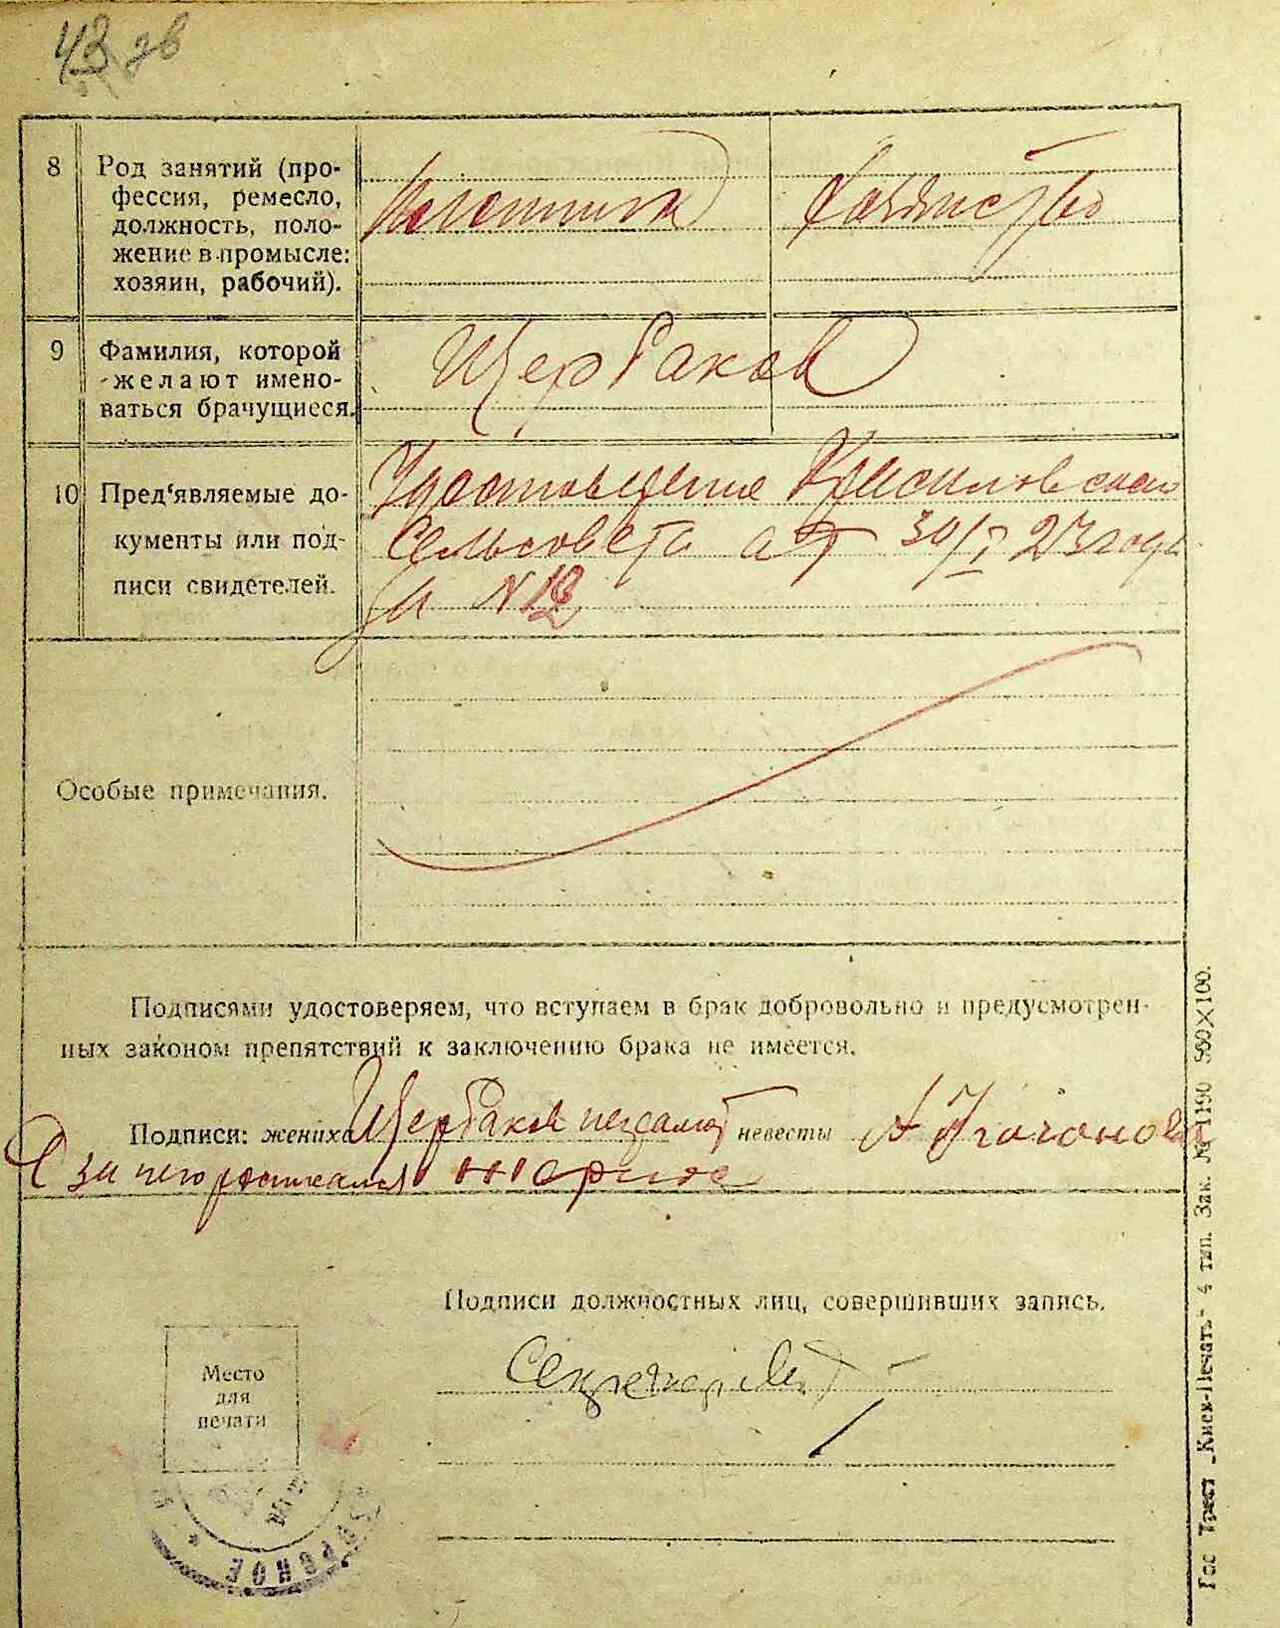 43 зв
8 Род занятий (про-
фессия, ремесло,
должность, поло-
жение в промысле:
хозяин, рабочий).
9 Фамилия, которой
желают имено-
ваться брачущиеся.
Щербаков
10 Пред‘являемые до-
кументы или под-
писи свидетелей.
Удостоведение
Сельсовета от 30/I 23 года
за N 12
Особые примечания.
Подписями удостоверяем, что вступаем в брак добровольно и предусмотрен-
ных законом препятствий к заключению брака не имеется.
Подписи: жениха Щербаков невесты А
за него
Подписи должностных лиц, совершивших запись.
Секретар
Место
для
печати
Гос Трест „Киев-Печать“ 4 тип. Зак. № 1190 500×100.